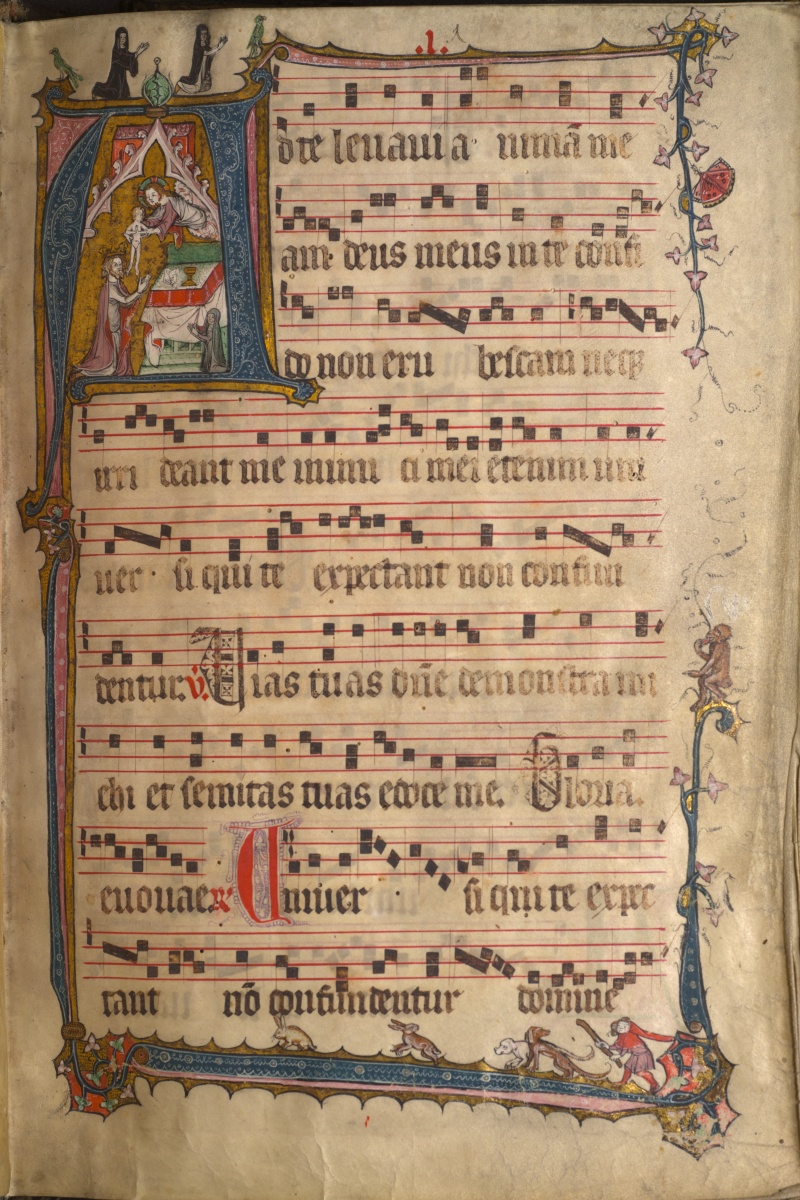 .1.
Ad te levavi a nimã me
am· deus meus in te confi
do non eru bescam neqȝ
irri deant me inimi ci mei etenim uni
uer· si qui te expectant non confun
dentur. ℣. Uias tuas dñe demonstra mi
chi et semitas tuas edoce me. Gloria.
euouae Uniuer si qui te expec
tant nõ confundentur domine